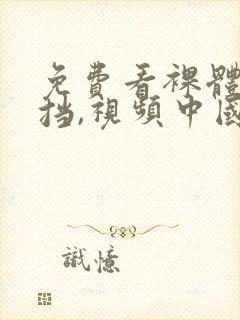 免費看裸體
挡,視頻中國
識憶